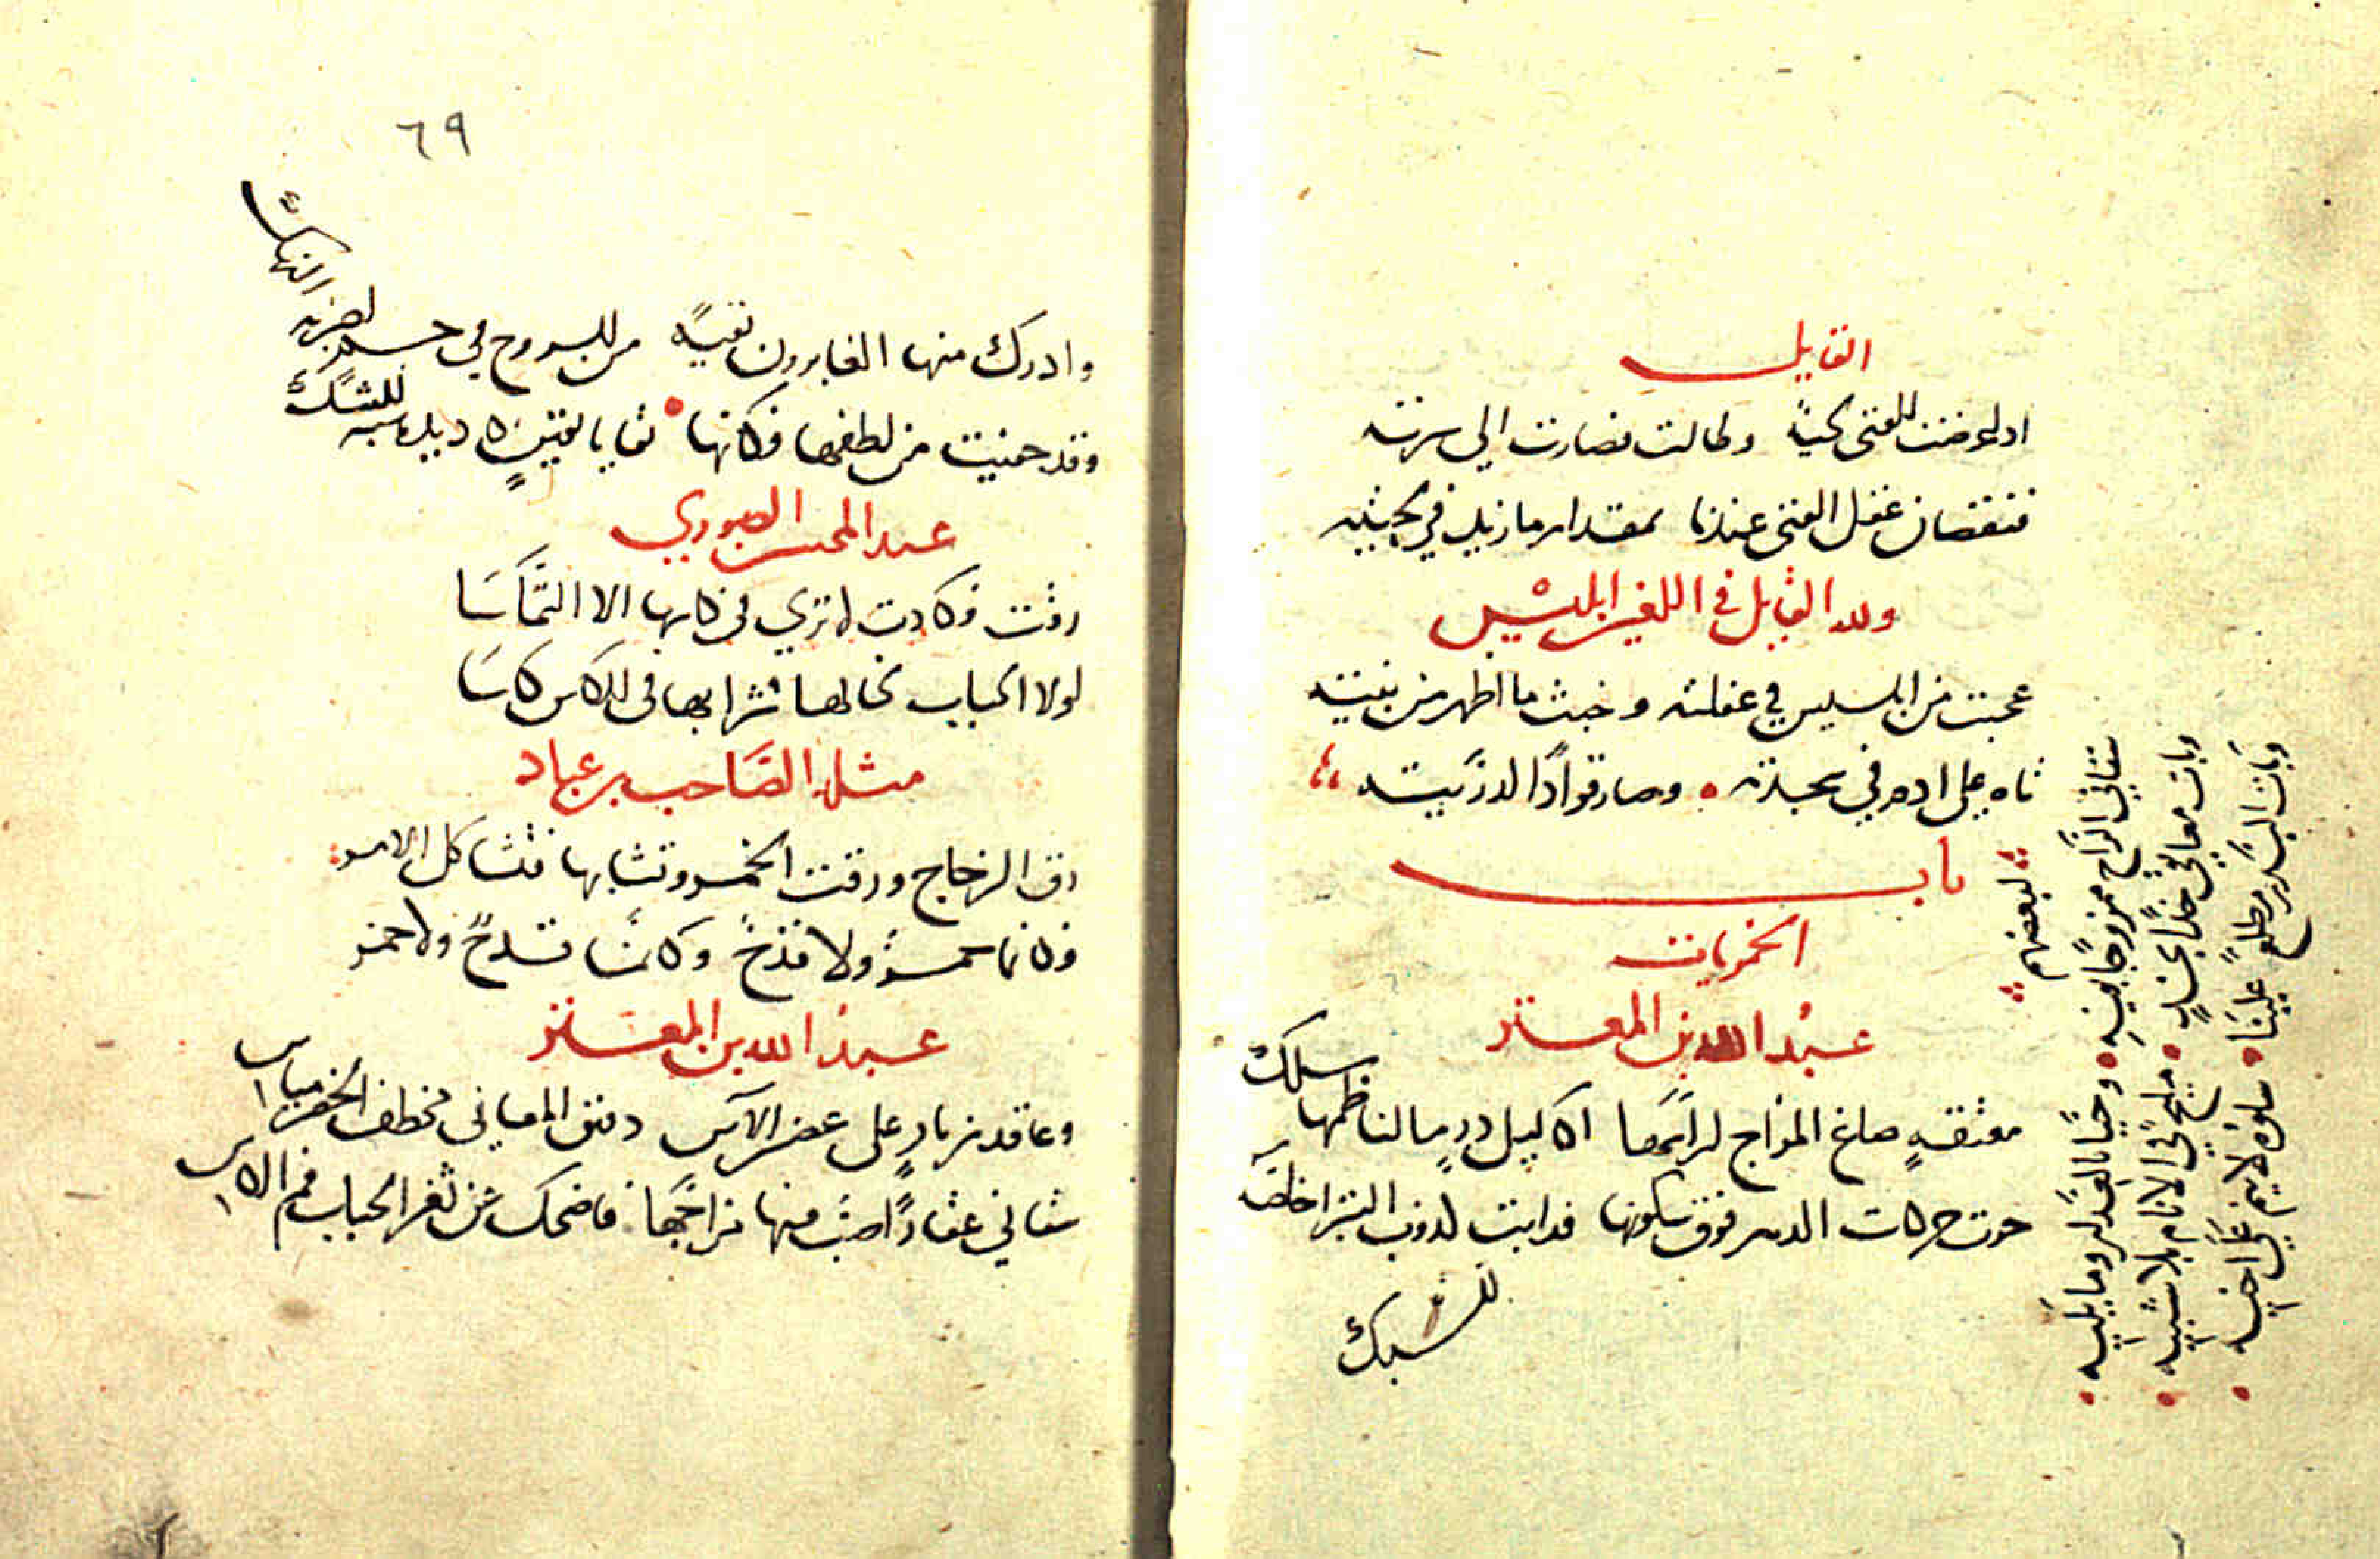 القايل
اذا عرضت للفتى لحية وطالت فصارت الى سرته
فنقصان عقل الفتى عندنا بمقدار ما زيد في لحيته
ولله القايل في اللعين ابليس
عجبت من ابليس في غفلته وخبث ما اظهر من نيته
تاه على ادم في سجدته وصار قوادا لذريته
باب
الخمريات
عبد الله بن المعتز
معتقة صاغ المزاج لراسها اكاليل در ما لناظمها سلك
جرت حركات الدهر فوق سكونها فذابت كذوب التبر اخلصه السبك
لبعضهم
سقاني الراح ممزوجا بفيه وحيا بالعذار وما يليه
وبات معانقي خدا بخد مليح في الانام بلا شبيه
وبات البدر مطلعا علينا سلوه لا ينم على اخيه
٦٩
وادرك منها الغابرون بقية من الروح في جسم اضر به النهك
وقد خفيت من لطفها فكانها بقايا يقين كاد يدركه الشك
عبد المحسن الصوري
رقت فكادت لا ترى في كاسها الا التماسا
لولا الحباب لخالها شرابها في الكاس كاسا
مثله الصاحب بن عباد
رق الزجاج ورقت الخمر وتشابها فتشاكل الامر
فكانما خمر ولا قدح وكانما قدح ولا خمر
عبد الله بن المعتز
وعاقد زنار على غصن الاس دقيق المعاني مخطف الخصر مياس
سقاني عقارا صب فيها مزاجها فاضحك عن ثغر الحباب فم الكاس